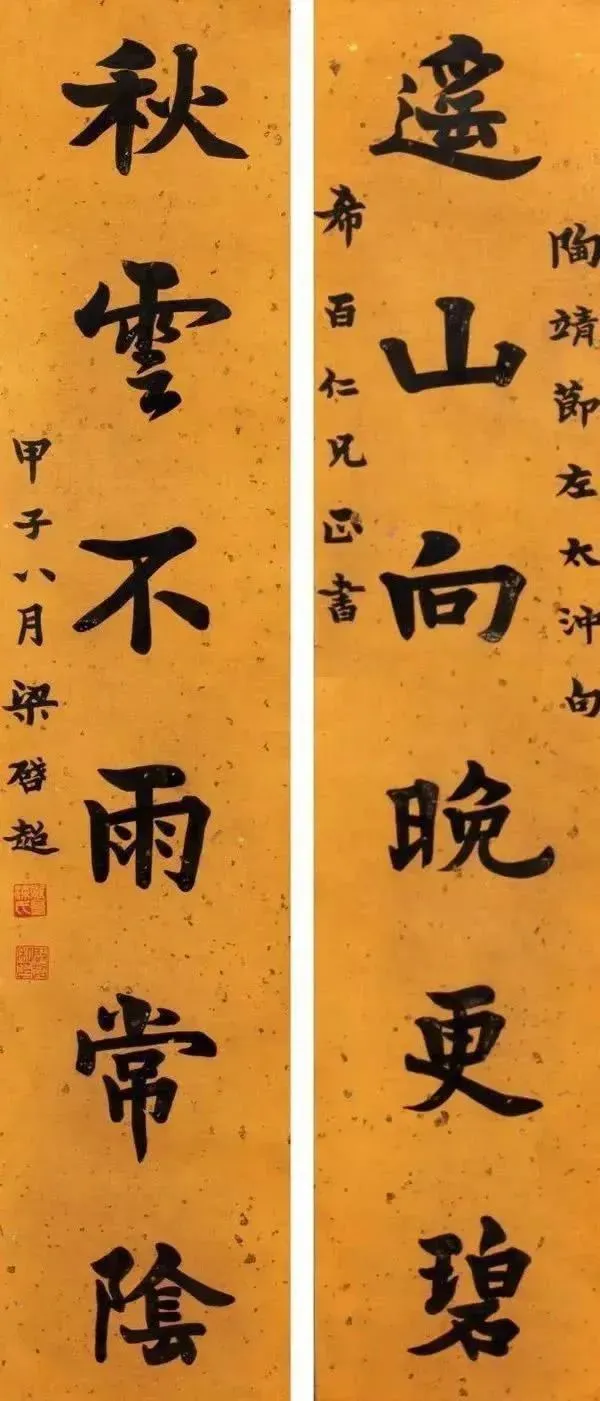 陶靖節左太沖句
遙山向晚更碧
希百仁兄正書
秋雲不雨常陰
甲子八月梁啓超